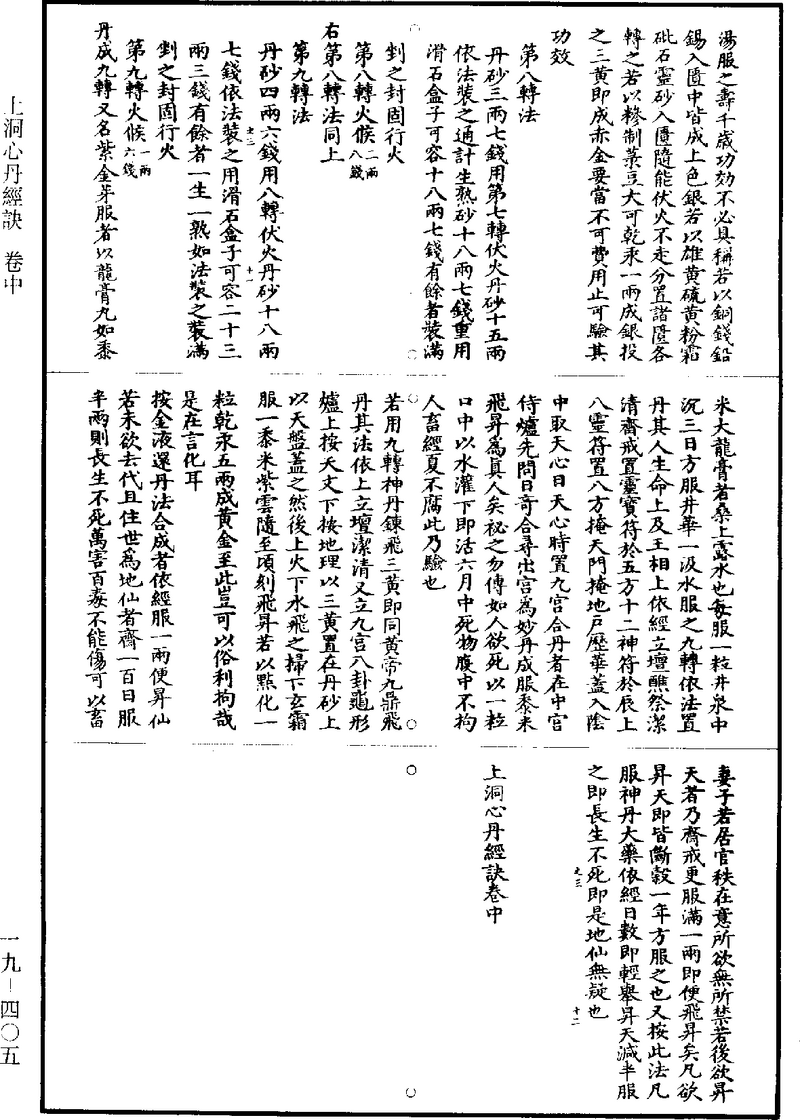 湯服之壽千歲功効不必具稱若以銅錢鉛
錫入匱中皆成上色銀若以雄黃硫黃粉霜
砒石靈砂入匱隨能伏火不走分置諸匱各
轉之若以糝制菉豆大可乾汞一兩成銀投
之三黃即成赤金要當不可費用止可驗其
功效
第八轉法
丹砂三兩七錢用第七轉伏火丹砂十五兩
依法裝之通計生熟砂十八兩七錢重用
滑石盒子可容十八兩七錢有餘者裝滿
㓨之封固行火
第八轉火候二兩八錢
右第八轉法同上
第九轉法
丹砂四兩六錢用八轉伏火丹砂十八兩
七錢依法裝之用滑石盒子可容二十三
兩三錢有餘者一生一熟如法裝之裝滿
㓨之封固行火
第九轉火候一兩六錢
丹成九轉又名紫金芽服者以龍膏丸如黍
米大龍膏者桑上露水也每服一粒井泉中
沉三日方服井華一汲水服之九轉依法置
丹其人生命上及王相上依經立壇醮祭潔
清齋戒置靈寶符於五方十二神符於辰上
八靈符置八方掩天門掩地戶歷華蓋入陰
中取天心日天心時置九宮合丹者在中宮
侍爐先問日奇合尋出宮為妙丹成服黍米
飛昇為真人矣祕之勿傳如人欲死以一粒
口中以水灌下即活六月中死物腹中不拘
人畜經夏不腐此乃驗也
若用九轉神丹鍊飛三黃即同黃帝九鼎飛
丹其法依上立壇潔清又立九宮八卦龜形
爐上按天文下按地理以三黃置在丹砂上
以天盤蓋之然後上火下水飛之掃下玄霜
服一黍米紫雲隨至頃刻飛昇若以點化一
粒乾汞五兩成黃金至此豈可以俗利拘哉
是在言化耳
按金液還丹法合成者依經服一兩便昇仙
若未欲去代且住世為地仙者齋一百日服
半兩則長生不死萬害百毒不能傷可以畜
妻子若居官秩在意所欲無所禁若後欲昇
天者乃齋戒更服滿一兩即便飛昇矣凡欲
昇天即皆斷穀一年方服之也又按此法凡
服神丹大藥依經日數即輕舉昇天減半服
之即長生不死即是地仙無疑也
上洞心丹經訣卷中
上洞心丹經訣 卷中
一九-四〇五